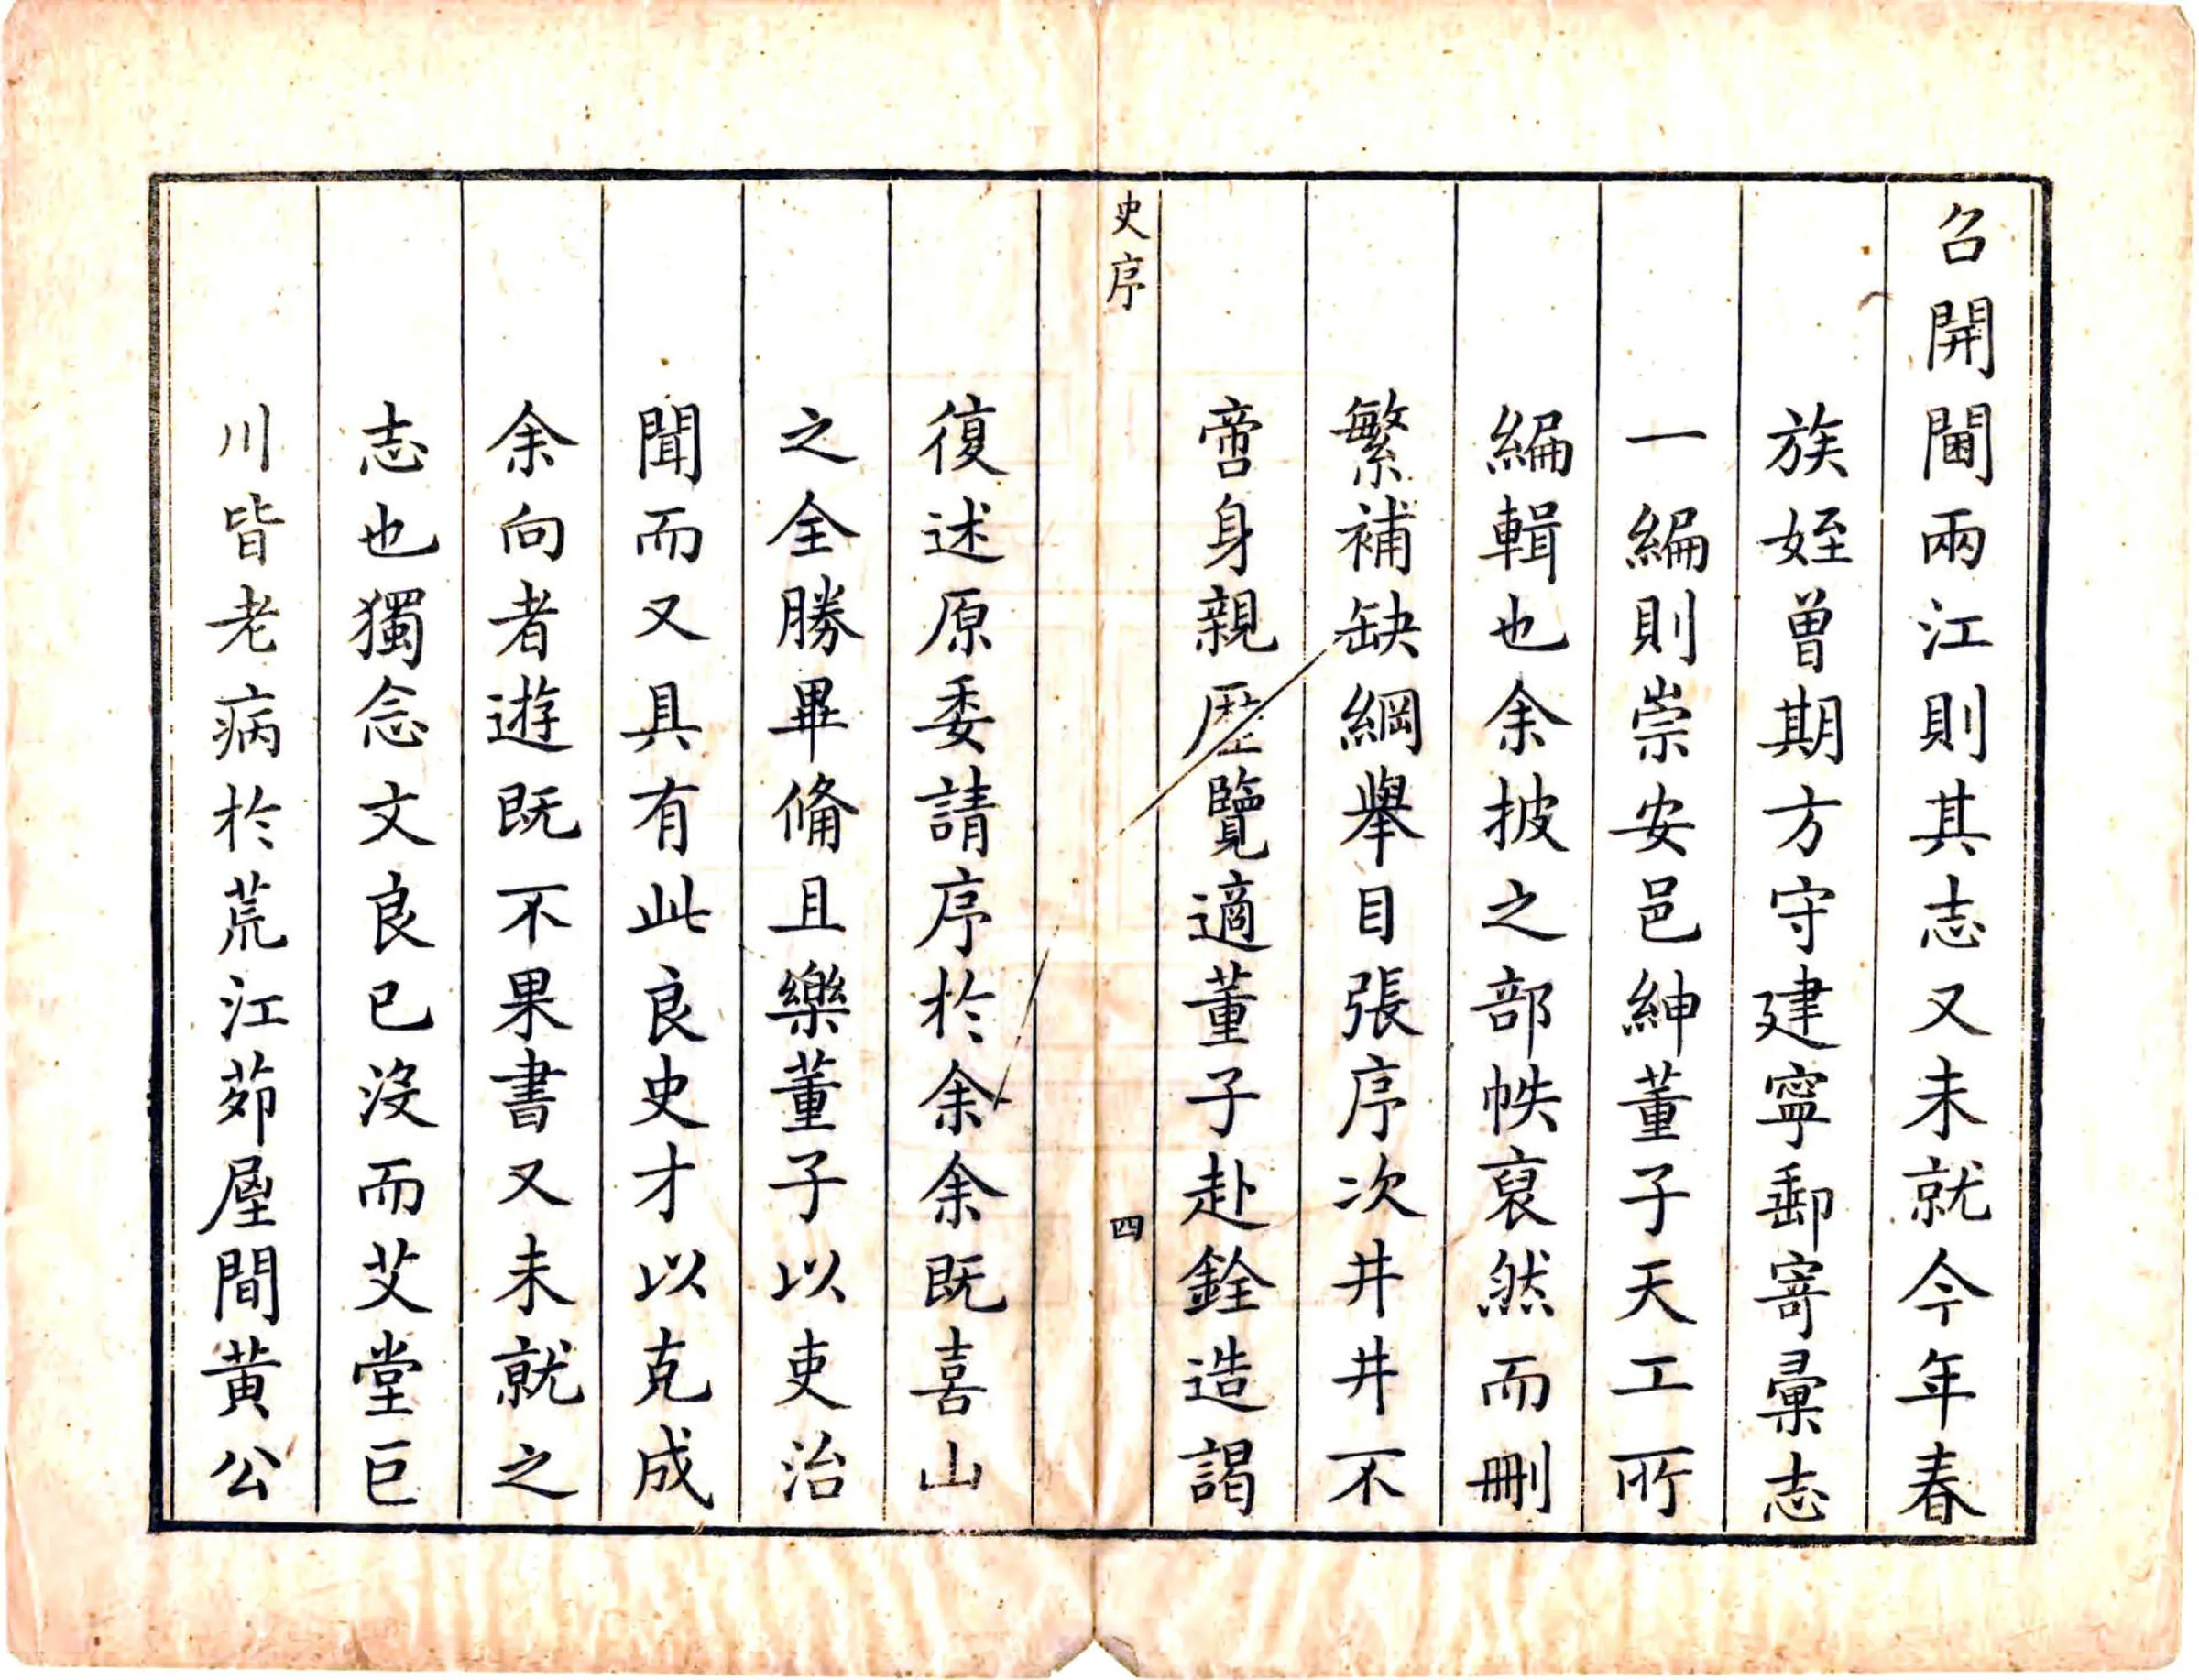 召開閫兩江則其志又未就今年春
族姪曾期方守建寧郵寄彚志
一編則崇安邑紳董子天工所
編輯也余披之部帙裒然而刪
繁補缺綱舉目張序次井井不
啻身親歷覽適董子赴銓造謁
史序
四
復述原委請序於余余既喜山
之全勝畢俻且樂董子以吏治
聞而又具有此良史才以克成
余向者遊既不果書又未就之
志也獨念文良已沒而艾堂巨
川皆老病於荒江茆屋間黃公